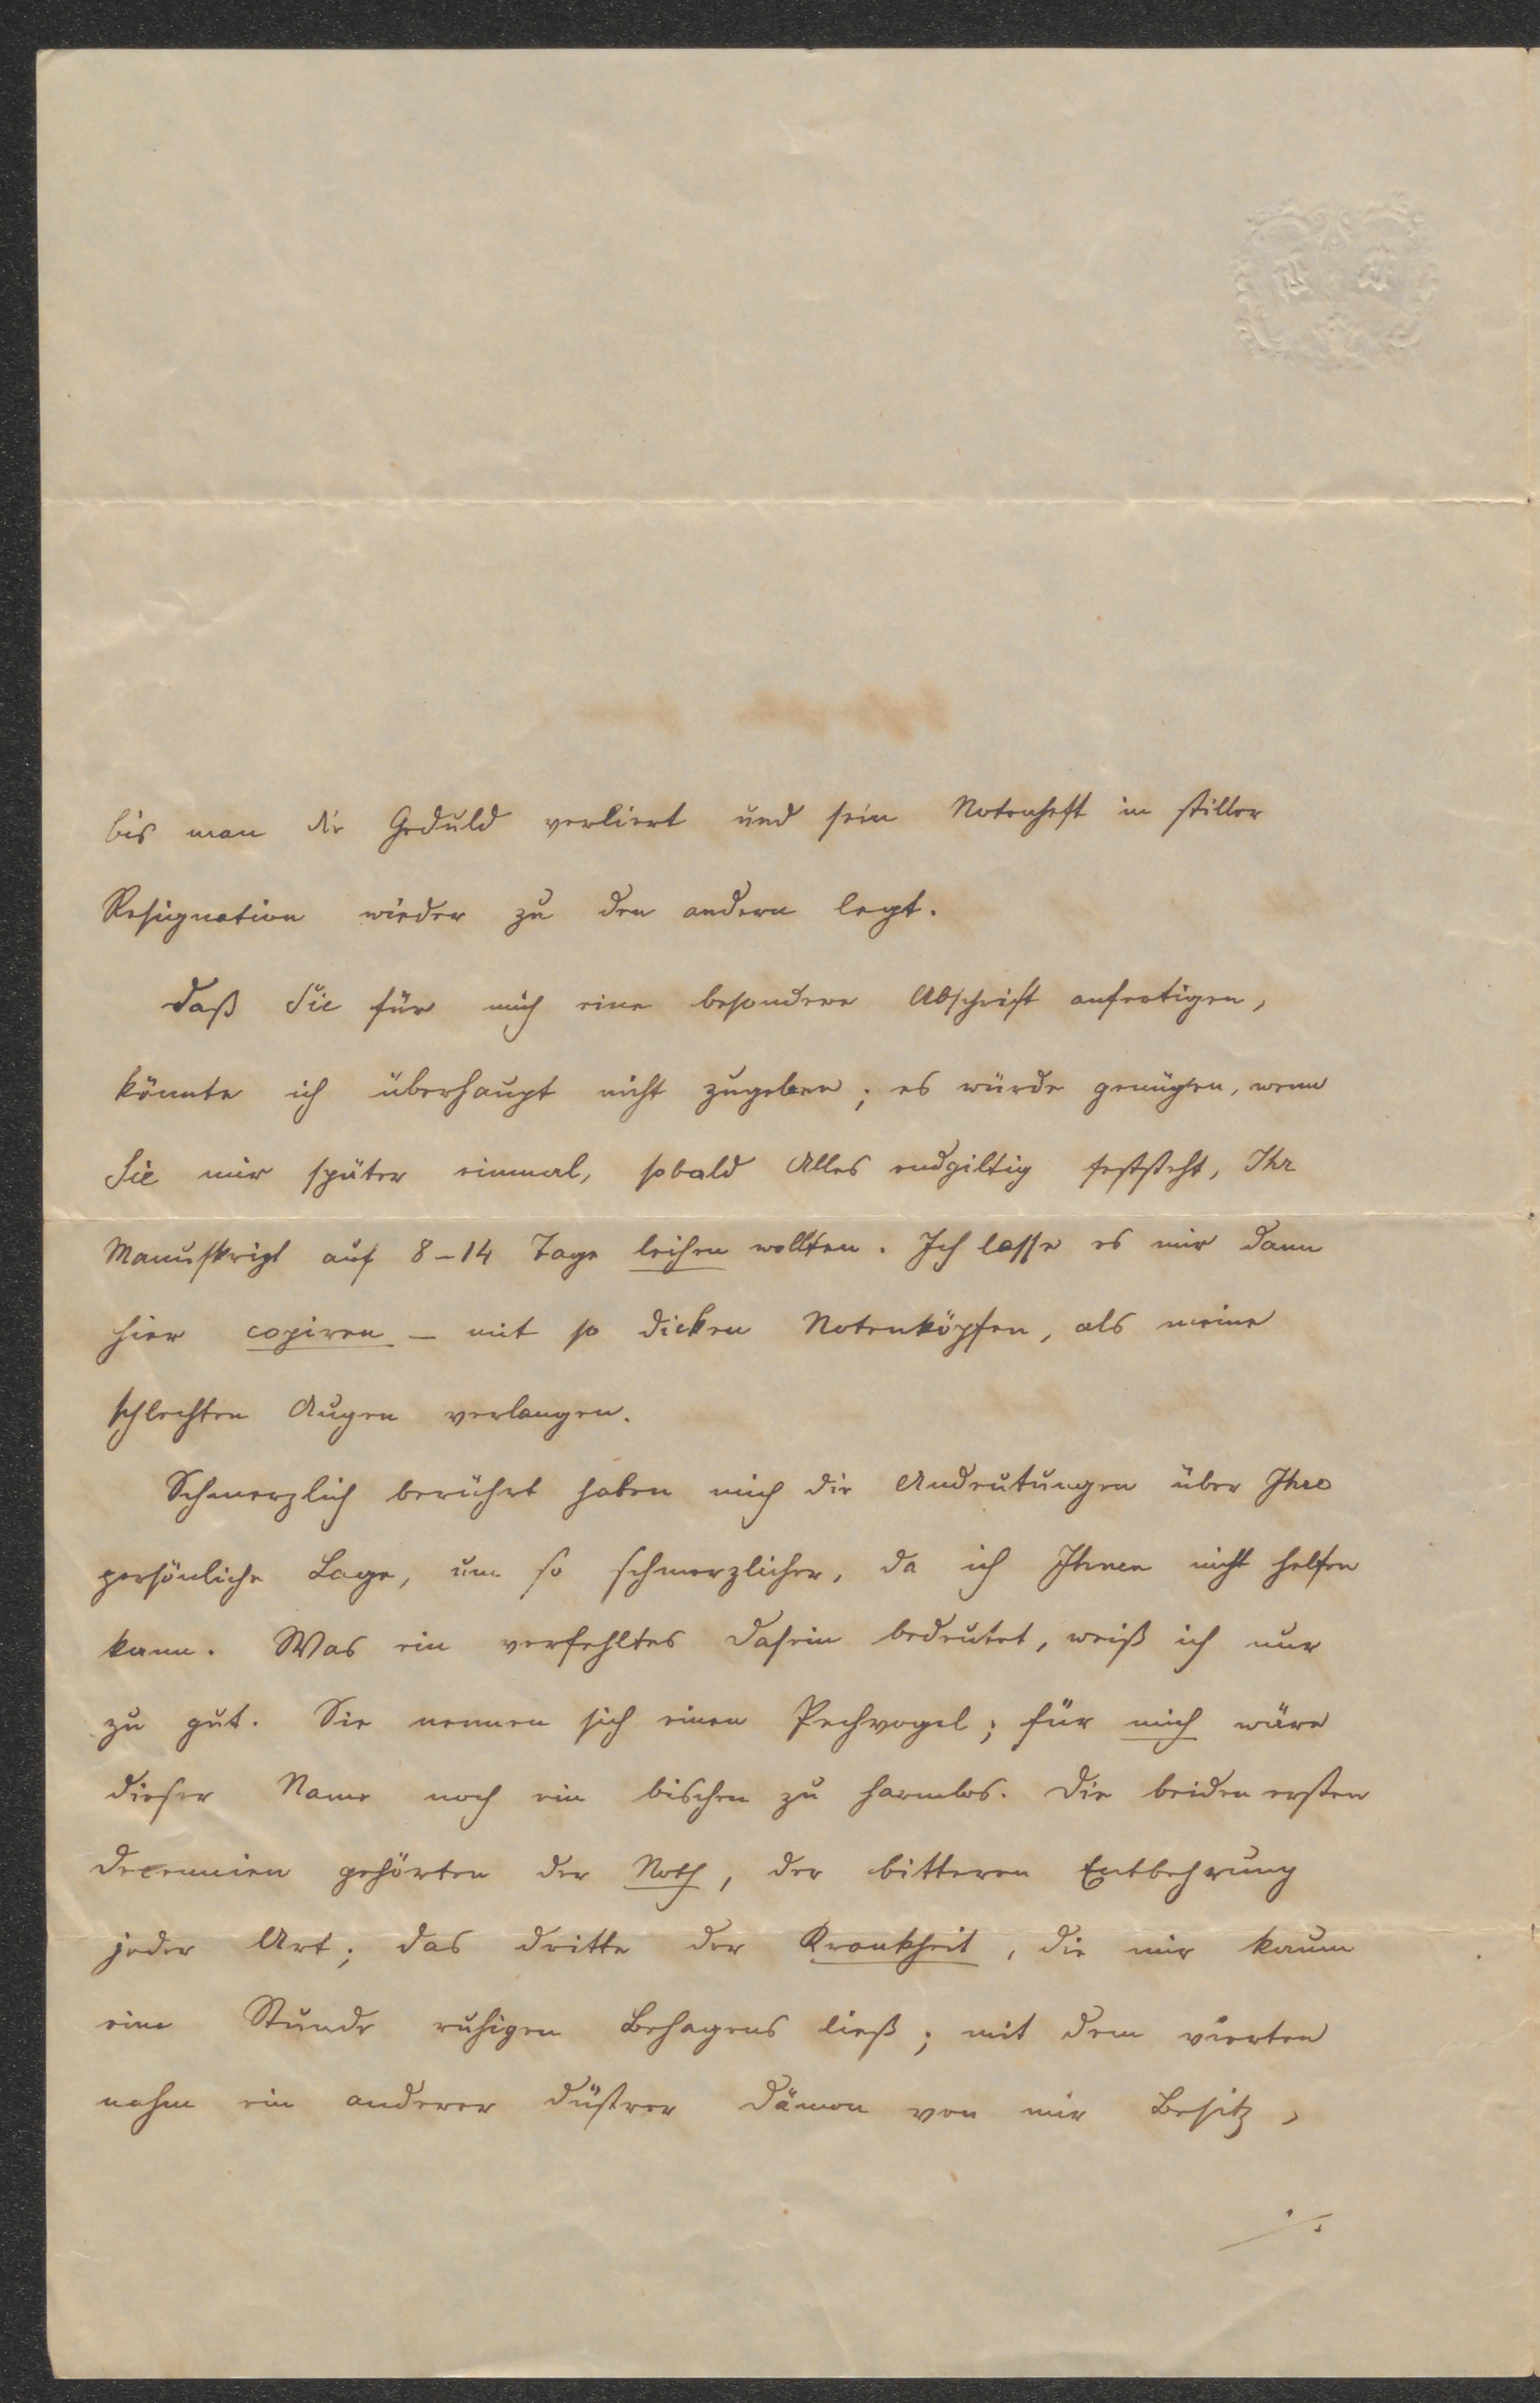 bis man die Geduld verliert und sein Notenheft in stiller
Resignation wieder zu den andern legt.
Daß Sie für mich eine besondere Abschrift anfertigen,
könnte ich überhaupt nicht zugeben; es würde genügen, wenn
Sie mir später einmal, sobald Alles endgiltig feststeht, Ihr
Manuskript auf 8–14 Tage leihen wollten. Ich lasse es mir dann
hier copiren – mit so dicken Notenköpfen, als meine
schlechten Augen verlangen.
Schmerzlich berührt haben mich die Andeutungen über Ihre
persönliche Lage, um so schmerzlicher, da ich Ihnen nicht helfen
kann. Was ein verfehltes Dasein bedeutet, weiß ich nur
zu gut. Sie nennen sich einen Pechvogel; für mich wäre
dieser Name noch ein bischen zu harmlos. Die beiden ersten
Decennien gehörten der Noth, der bitteren Entbehrung
jeder Art; das dritte der Krankheit, die mir kaum
eine Stunde ruhigen Behagens ließ; mit dem vierten
nahm ein anderer düstrer Dämon von mir Besitz,
./.